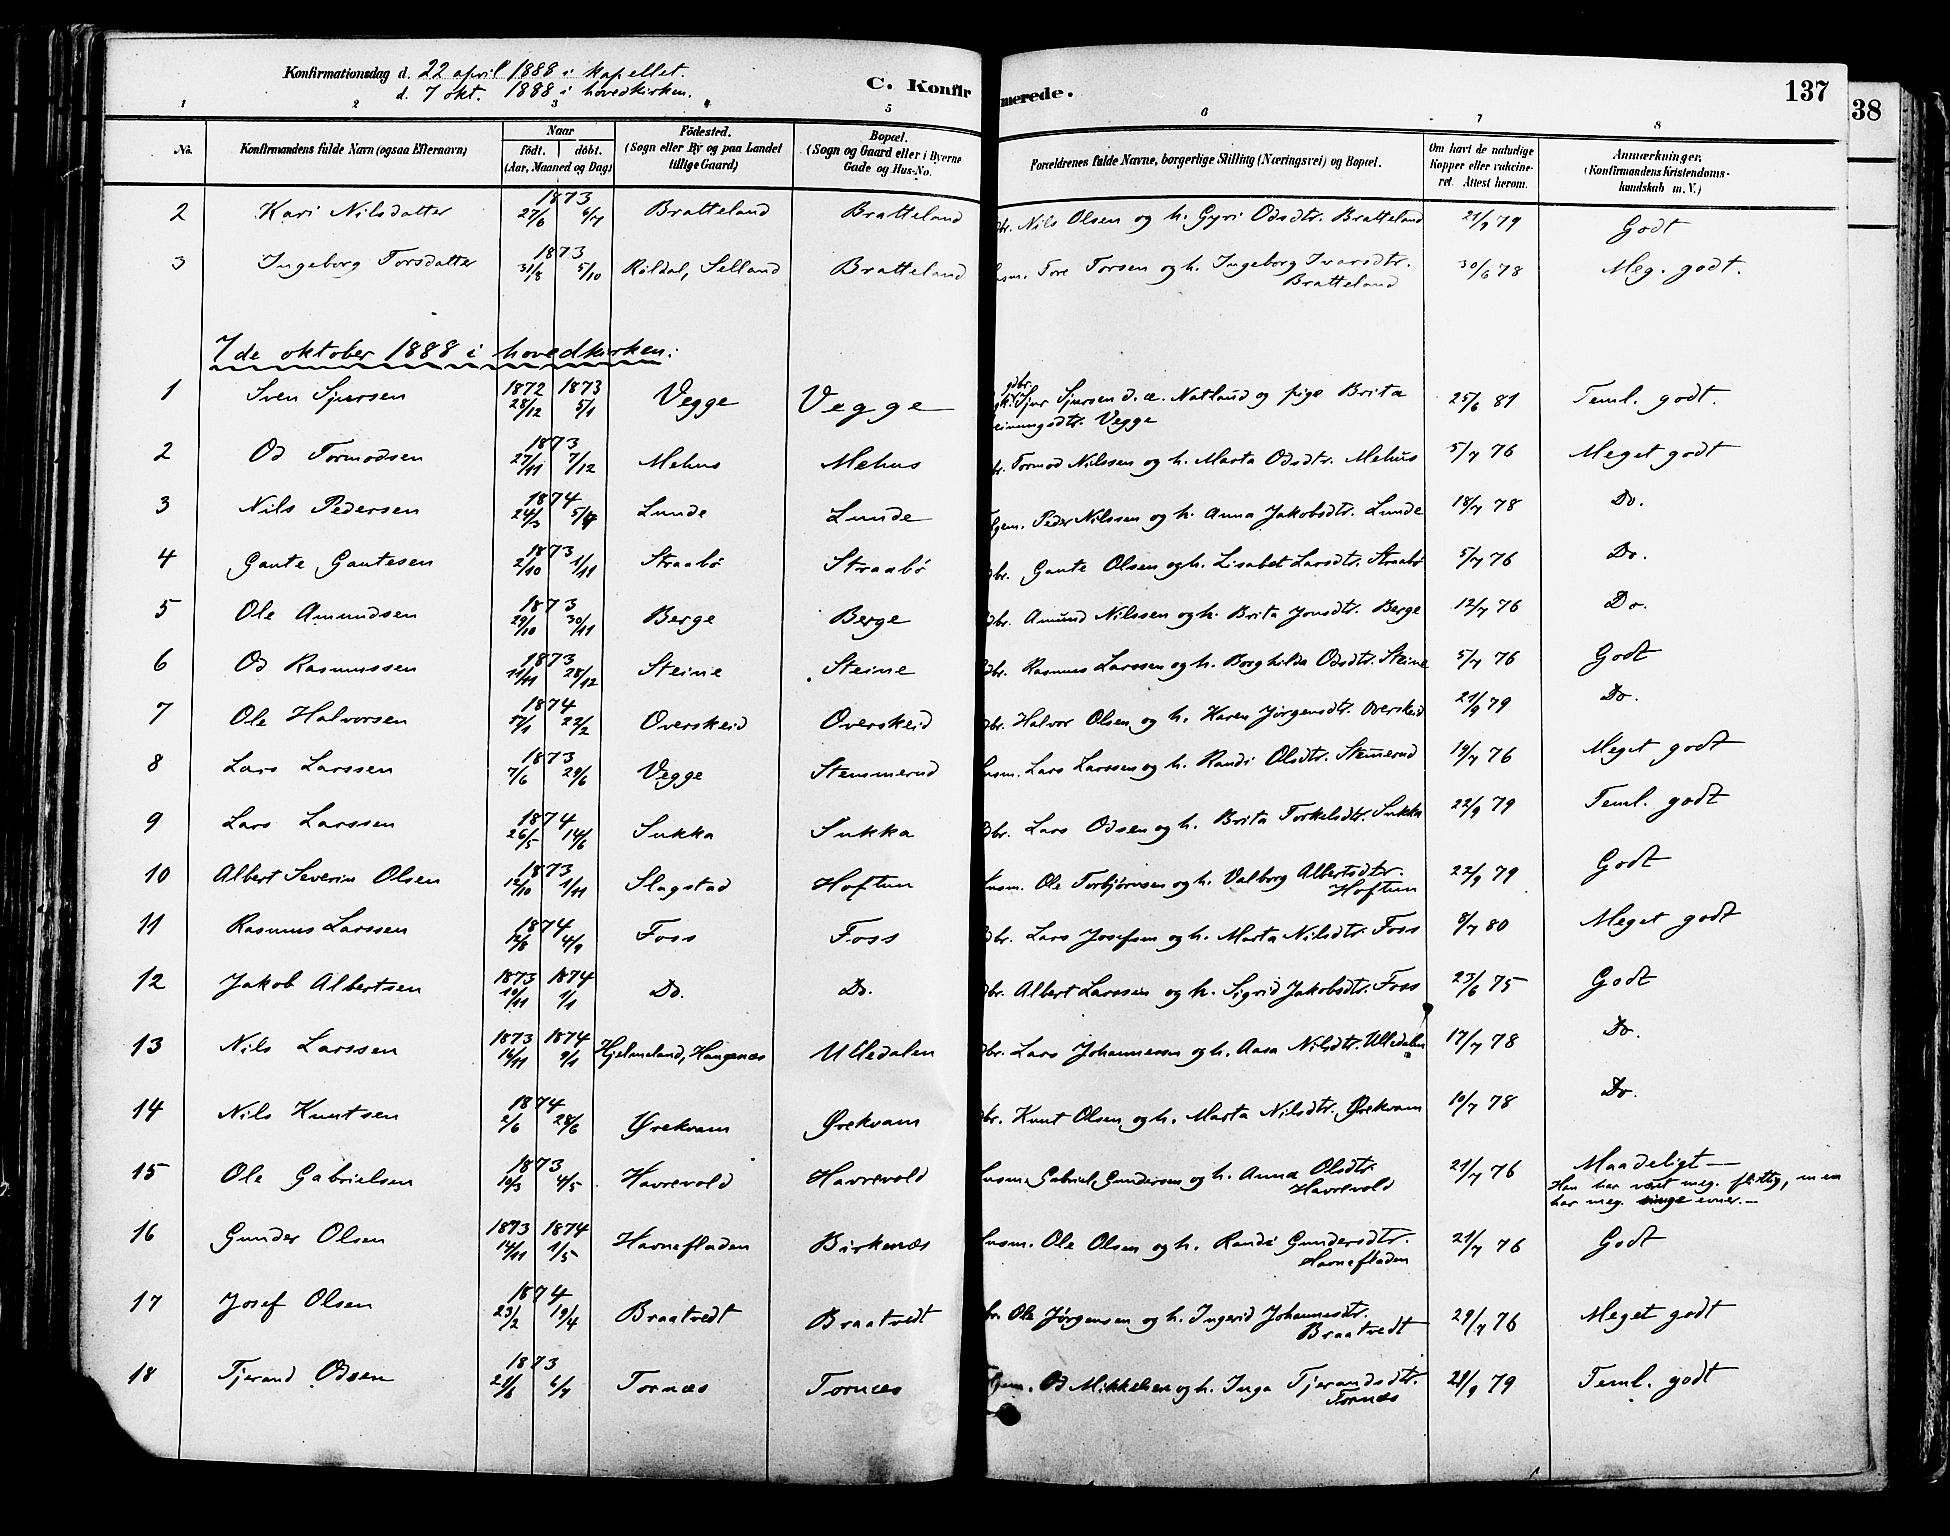 Konfirmationsdag d. 22 april 1888 i kapellet.
d. 7 okt. 1888 i hovedkirken.
C. Konfirmerede.
137
38
1 2 3 4 5 6 7 8
No. Konfirmandens fulde Navn (ogsaa Efternavn) Naar født. døbt. (Aar, Maaned og Dag) Fødested. (Sogn eller By og paa Landet tillige Gaard) Bopæl. (Sogn og Gaard eller i Byerne Gade og Hus-No. Forældrenes fulde Navne, borgerlige Stilling (Næringsvei) og Bopæl. Om havt de naturlige Kopper eller vakcineret. Attest herom. Anmærkninger. (Konfirmandens Kristendomskundskab m. V.)
2 Kari Nilsdatter 1873 27/6 6/7 Bratteland Bratteland dbr. Nils Olsen og h. Gyri Odsdtr. Bratteland 21/9 79 Godt
3 Ingeborg Torsdatter 1873 31/8 5/10 Röldal, Selland Bratteland usm. Tore Torsen og h. Ingeborg Ivarsdtr. Bratteland 30/6 78 Meg. godt.
7de oktober 1888 i hovedkirken:
1 Sven Sjursen 1872 28/12 1873 5/1 Vegge Vegge gdbr. Sjur Sjursen d. æ. Natland og pige Brita Vegge 25/6 81 Teml. godt.
2 Od Tormodsen 1873 27/11 7/12 Mehus Mehus br. Tormod Nilssen og h. Marta Odsdtr. Mehus 5/7 76 Meget godt
3 Nils Pedersen 1874 24/3 5/4 Lunde Lunde Peder Nilssen og h. Anna Jakobsdtr. Lunde 18/7 78 Do.
4 Gaute Gautesen 1873 2/10 1/11 Straabø Straabø dbr. Gaute Olsen og h. Lisabet Larsdtr. Straabø 5/7 76 Do.
5 Ole Amundsen 1873 29/10 30/11 Berge Berge dbr. Amund Nilssen og h. Brita Jonsdtr. Berge 12/7 76 Do.
6 Od Rasmussen 1873 11/11 28/12 Steine Steine dbr. Rasmus Larssen og h. Borghilda Odsdtr. Steine 5/7 76 Godt
7 Ole Halvorsen 1874 17/1 22/2 Overskeid Overskeid dbr. Halvor Olsen og h. Karen Jørgensdtr. Overskeid 21/9 79 Do.
8 Lars Larssen 1873 7/6 29/6 Vegge Stemmerud usm. Lars Larssen og h. Randi Olsdtr. Stemmerud 19/7 76 Meget godt
9 Lars Larssen 1874 26/5 14/6 Sukka Sukka dbr. Lars Odsen og h. Brita Torkelsdtr. Sukka 22/9 79 Teml. godt
10 Albert Severin Olsen 1873 12/10 1/11 Slagstad Hoftun usm. Ole Torbjørnsen og h. Valborg Albertsdtr. Hoftun 22/9 79 Godt
11 Rasmus Larssen 1874 12/8 4/9 Foss Foss dbr. Lars Josefsen og h. Marta Nilsdtr. Foss 8/7 80 Meget godt
12 Jakob Albertsen 1873 10/11 1874 1/1 Do. Do. dbr. Albert Larssen og h. Sigrid Jakobsdtr. Foss 23/6 75 Godt
13 Nils Larssen 1873 16/11 1874 9/1 Hjelmeland, Haugenæs Ulledalen dbr. Lars Johannesen og h. Aasa Nilsdtr. Ulledalen 17/7 78 Do.
14 Nils Knutsen 1874 2/6 28/6 Ørekvam Ørekvam dbr. Knut Olsen og h. Marta Nilsdtr. Ørekvam 10/7 78 Do.
15 Ole Gabrielsen 1873 10/3 4/5 Havrevold Havrevold usm. Gabriel Gundersen og h. Anna Olsdtr. Havrevold 21/7 76 Maadeligt — Han har været meg. flittig, men har meg. ringe evner.—
16 Gunder Olsen 1873 14/11 1874 1/5 Havnefladen Birkenæs usm. Ole Olsen og h. Randi Gundersdtr. Havnefladen 21/7 76 Godt
17 Josef Olsen 1874 23/2 19/4 Braatvedt Braatvedt br. Ole Jørgensen og h. Ingerid Johannesdtr. Braatvedt 29/7 76 Meget godt
18 Tjerand Odsen 1873 21/6 6/7 Tornæs Tornæs Od Mikkelsen og h. Inga Tjerandsdtr. Tornæs 21/9 79 Teml. godt